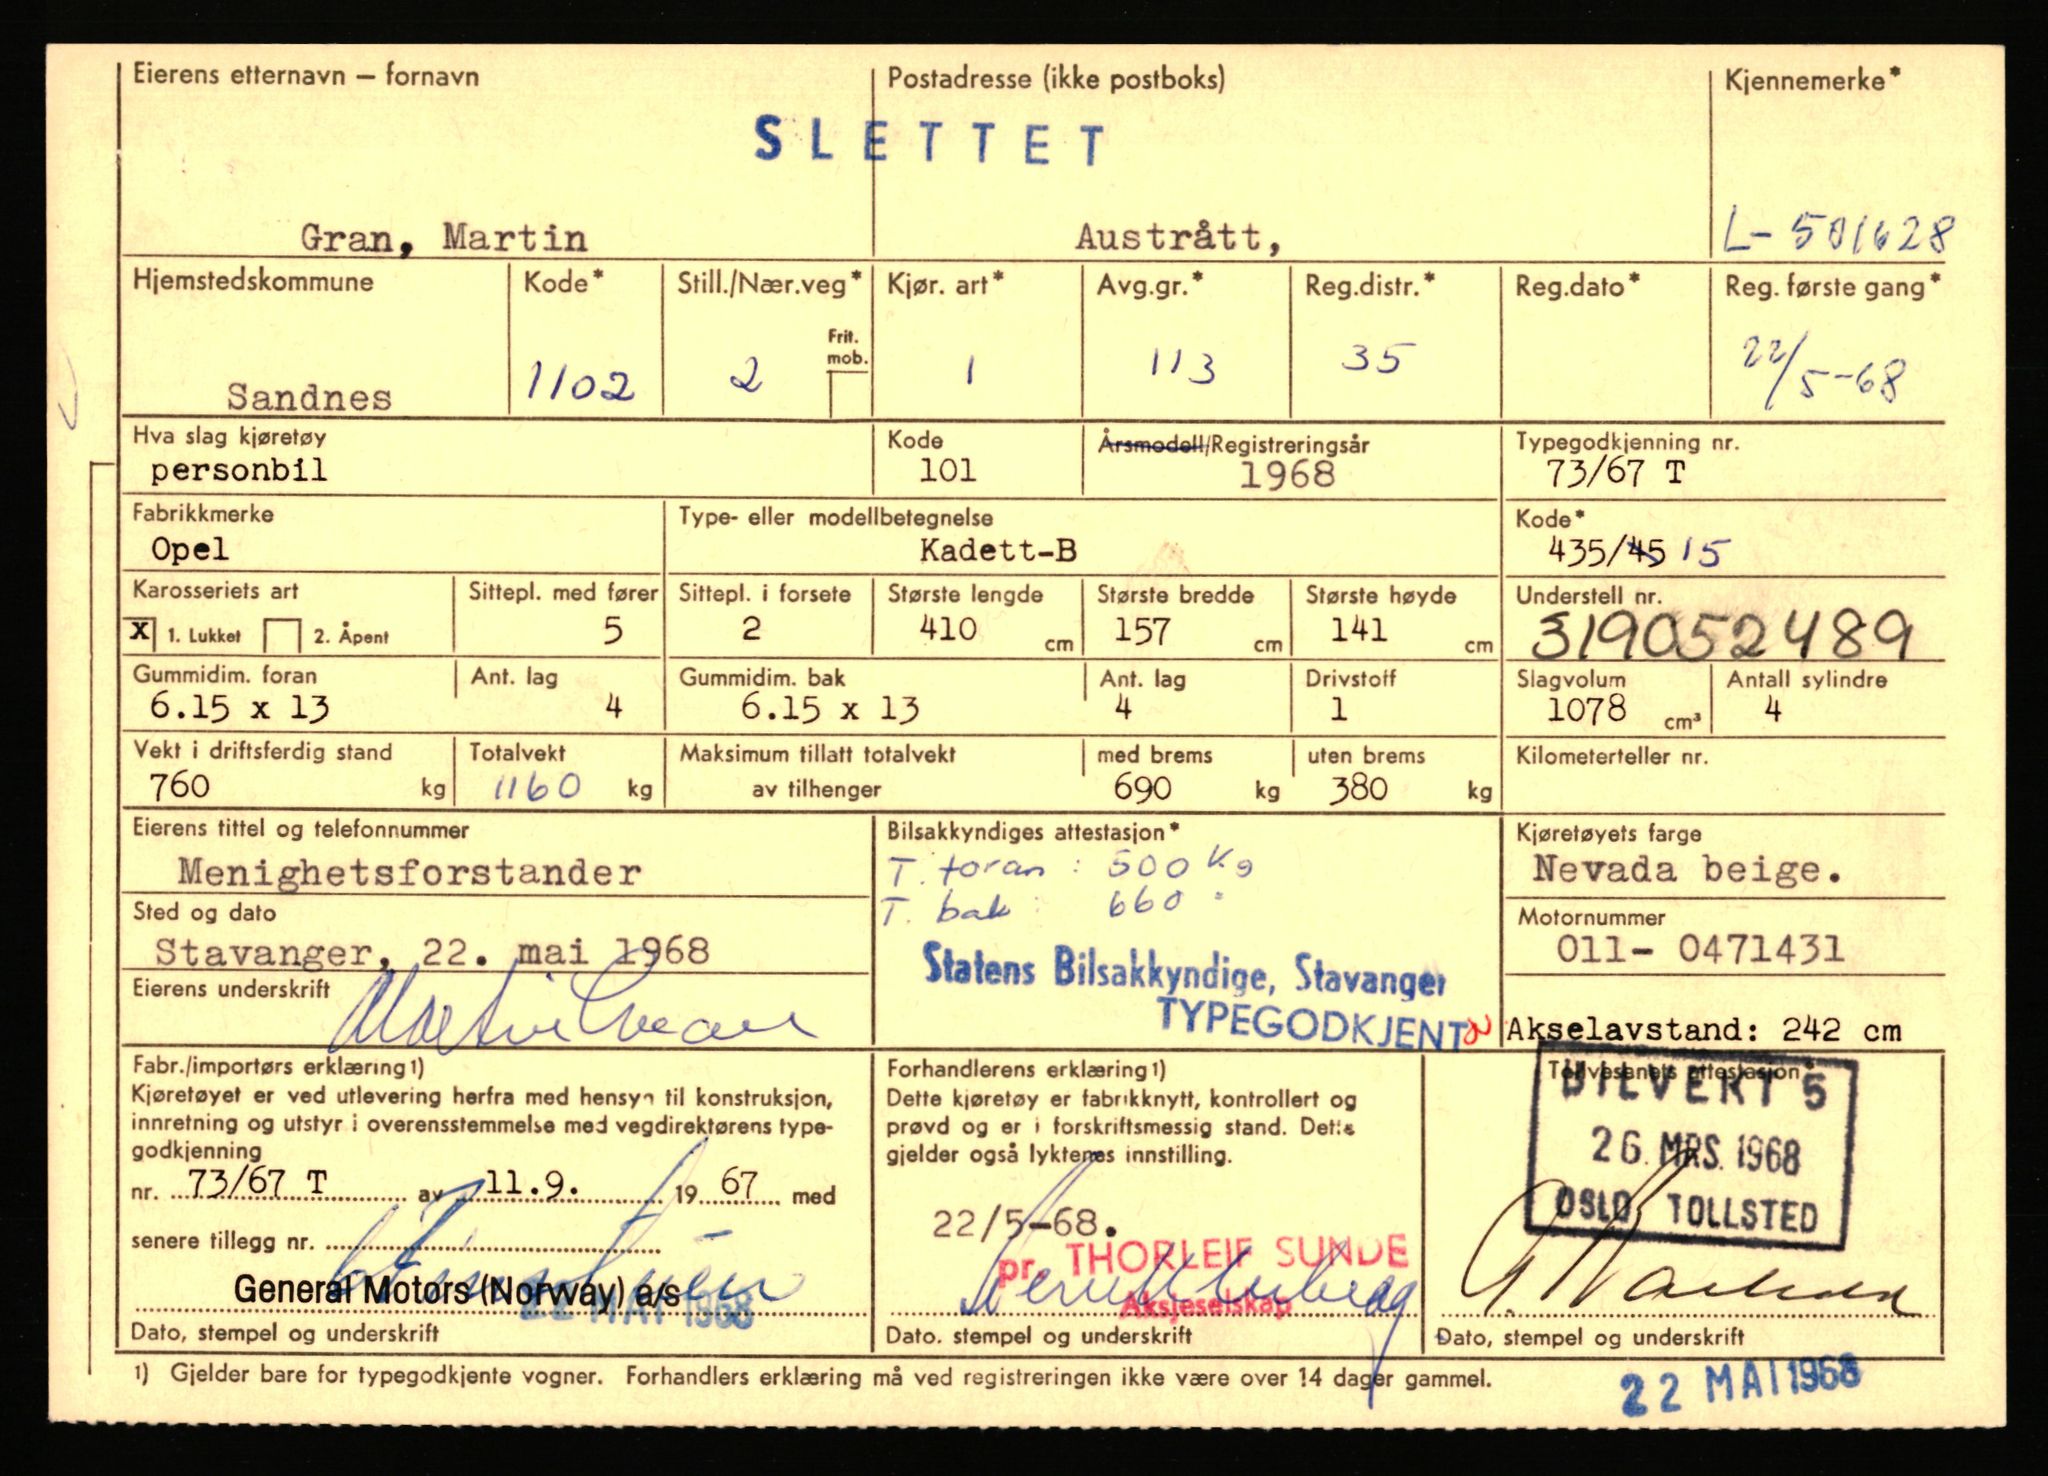 Eierens etternavn – fornavn
Postadresse (ikke postboks)
Kjennemerke*
SLETTET
Gran, Martin
Austrått,
L- 501628
Hjemstedskommune
Kode*
Still./Nær.veg*
Kjør. art*
Avg.gr.*
Reg.distr.*
Reg.dato*
Reg. første gang*
Frit. mob.
Sandnes
1102
2
1
113
35
22/5-68
Hva slag kjøretøy
Kode
Årsmodell/Registreringsår
Typegodkjenning nr.
personbil
101
1968
73/67 T
Fabrikkmerke
Type- eller modellbetegnelse
Kode*
Opel
Kadett-B
435/45 15
Karosseriets art
Sittepl. med fører
Sittepl. i forsete
Største lengde
Største bredde
Største høyde
Understell nr.
X 1. Lukket 2. Åpent
5
2
410 cm
157 cm
141 cm
319052489
Gummidim. foran
Ant. lag
Gummidim. bak
Ant. lag
Drivstoff
Slagvolum
Antall sylindre
6.15 x 13
4
6.15 x 13
4
1
1078 cm³
4
Vekt i driftsferdig stand
Totalvekt
Maksimum tillatt totalvekt
med brems
uten brems
Kilometerteller nr.
760 kg
1160 kg
av tilhenger
690 kg
380 kg
Eierens tittel og telefonnummer
Bilsakkyndiges attestasjon*
Kjøretøyets farge
Menighetsforstander
T. foran : 500 Kg
Nevada beige.
T. bak : 660 "
Sted og dato
Motornummer
Stavanger, 22. mai 1968
Statens Bilsakkyndige, Stavanger
011- 0471431
Eierens underskrift
Martin Gran
TYPEGODKJENT
Akselavstand: 242 cm
Fabr./importørs erklæring 1)
Kjøretøyet er ved utlevering herfra med hensyn til konstruksjon,
innretning og utstyr i overensstemmelse med vegdirektørens type-
godkjenning
nr. 73/67 T av 11.9. 19 67 med
senere tillegg nr.
General Motors (Norway) a/s
22 MAI 1968
Dato, stempel og underskrift
Forhandlerens erklæring 1)
Dette kjøretøy er fabrikknytt, kontrollert og
prøvd og er i forskriftsmessig stand. Dette
gjelder også lyktenes innstilling.
22/5-68.
pr. THORLEIF SUNDE
Aksjeselskap
Dato. stempel og underskrift
Tollvesenets attestasjon*
BILVERT 5
26. MRS. 1968
OSLO TOLLSTED
Dato, stempel og underskrift
1) Gjelder bare for typegodkjente vogner. Forhandlers erklæring må ved registreringen ikke være over 14 dager gammel.
22 MAI 1968